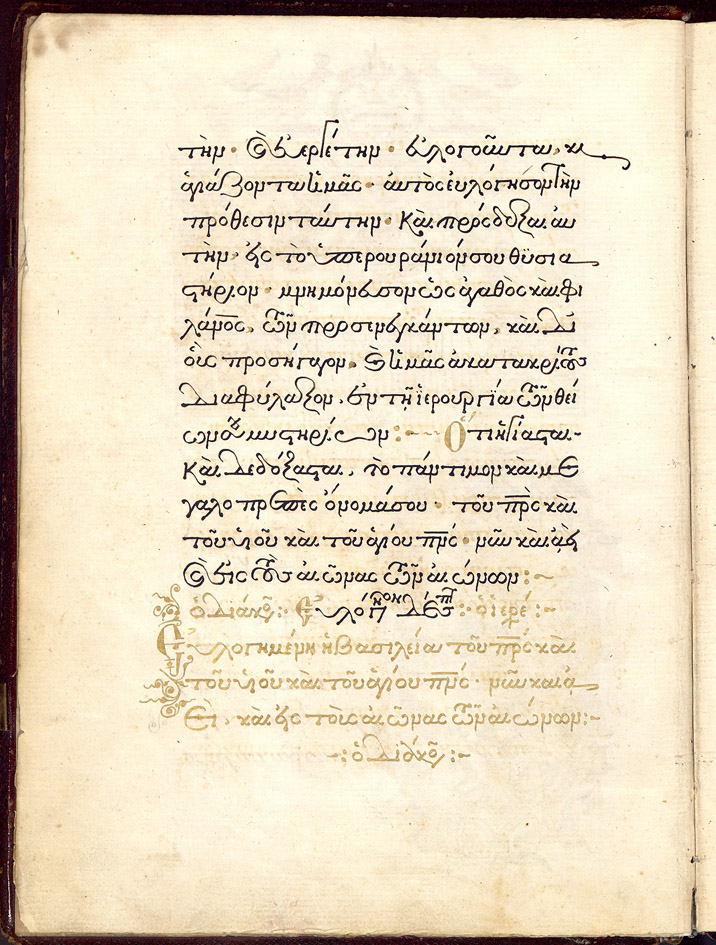 τὴν · Εὐεργέτην · εὐλογοῦντα, κ(αὶ)
ἁγιάζοντα ἡμᾶς · αὐτὸς εὐλόγησον τὴν
πρόθεσιν ταύτην · Καὶ πρόσδεξαι αὐ
τὴν · εἰς τὸ ὑπερουράνιόν σου θϋσια
στήριον · μνημόνευσον ὡς ἀγαθὸς καὶ φι
λάνος, τῶν προσενεγκάντων, καὶ δι
οὓς προσήγαγον · Καὶ ἡμᾶς ἀκατακρίτους
διαφύλαξον, ἐν τῇ ἱερουργία τῶν θεί
ων σου μυστηρίων :~ Ὅτι ἡγίασται ·
Καὶ δεδόξασται, τὸ πάντιμον καὶ με
γαλοπρεπὲς ὄνομά σου · τοῦ πρς καὶ
τοῦ υἱοῦ καὶ τοῦ ἁγίου πνς · νῦν καὶ ἀεὶ
Καὶ εἰς τοὺς αἰῶνας τῶν αἰώνων :~
ὁ διάκο :· Εὐλόγησον δέσπ :· ὁ ἱερε :~
Εὐλογημένη ἡ βασιλεία τοῦ πρς καὶ
τοῦ υἱοῦ καὶ τοῦ ἁγίου πνς · νῦν καὶ ἀ
εὶ, καὶ εἰς τοὺς αἰῶνας τῶν αἰώνων :~
~: ὁ διάκο :~